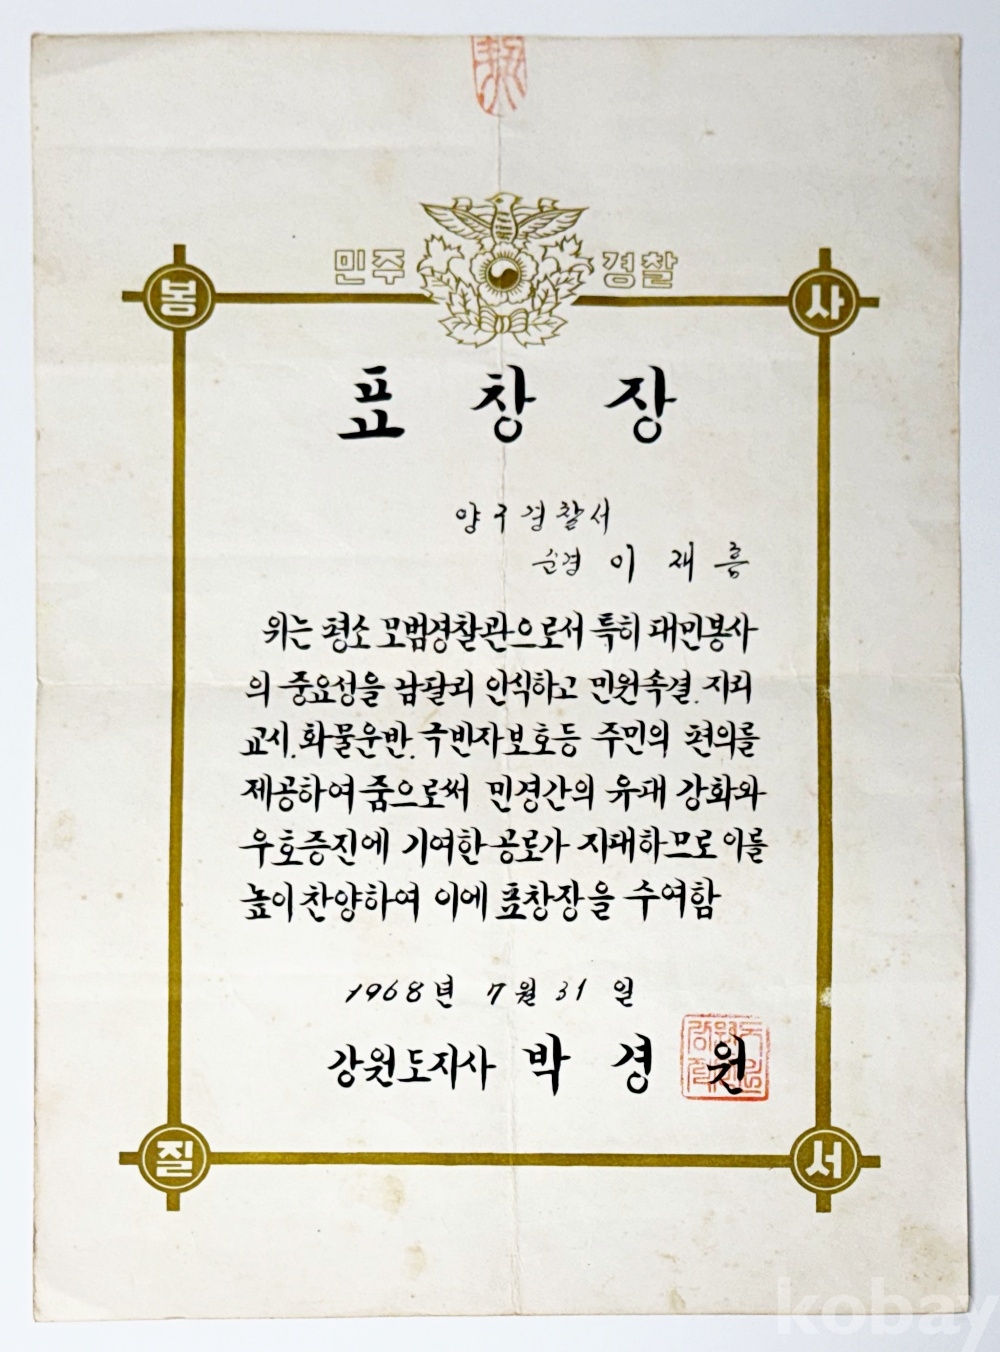 민주 경찰
봉 사
표 창 장
양구경찰서
순경 이 재 흥
위는 평소 모범경찰관으로서 특히 대민봉사
의 중요성을 남달리 인식하고 민원속결. 지리
교시. 화물운반. 극빈자보호등 주민의 편의를
제공하여 줌으로써 민경간의 유대 강화와
우호증진에 기여한 공로가 지대하므로 이를
높이 찬양하여 이에 표창장을 수여함
1968년 7월 31일
강원도지사 박 경 원
질 서
kobay